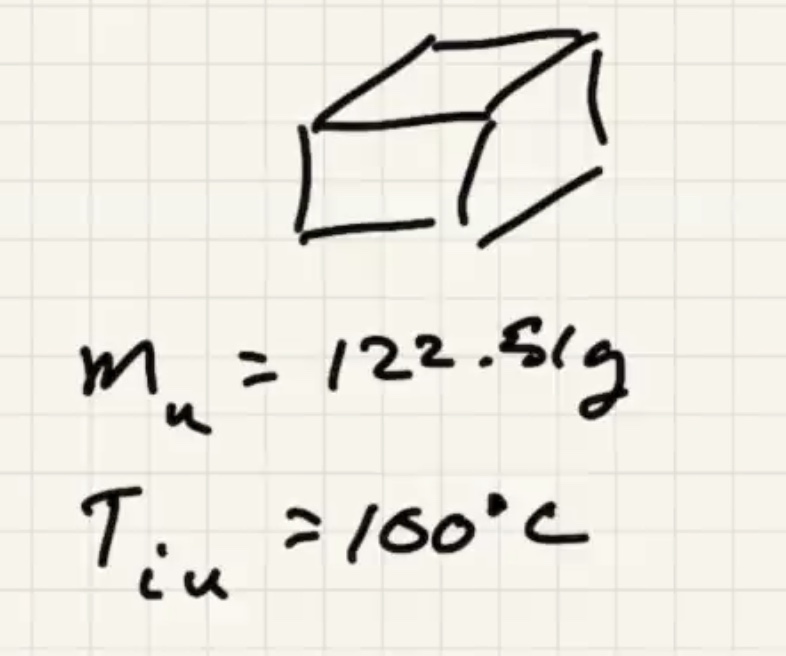 m_u = 122.51g
T_iu = 100°C